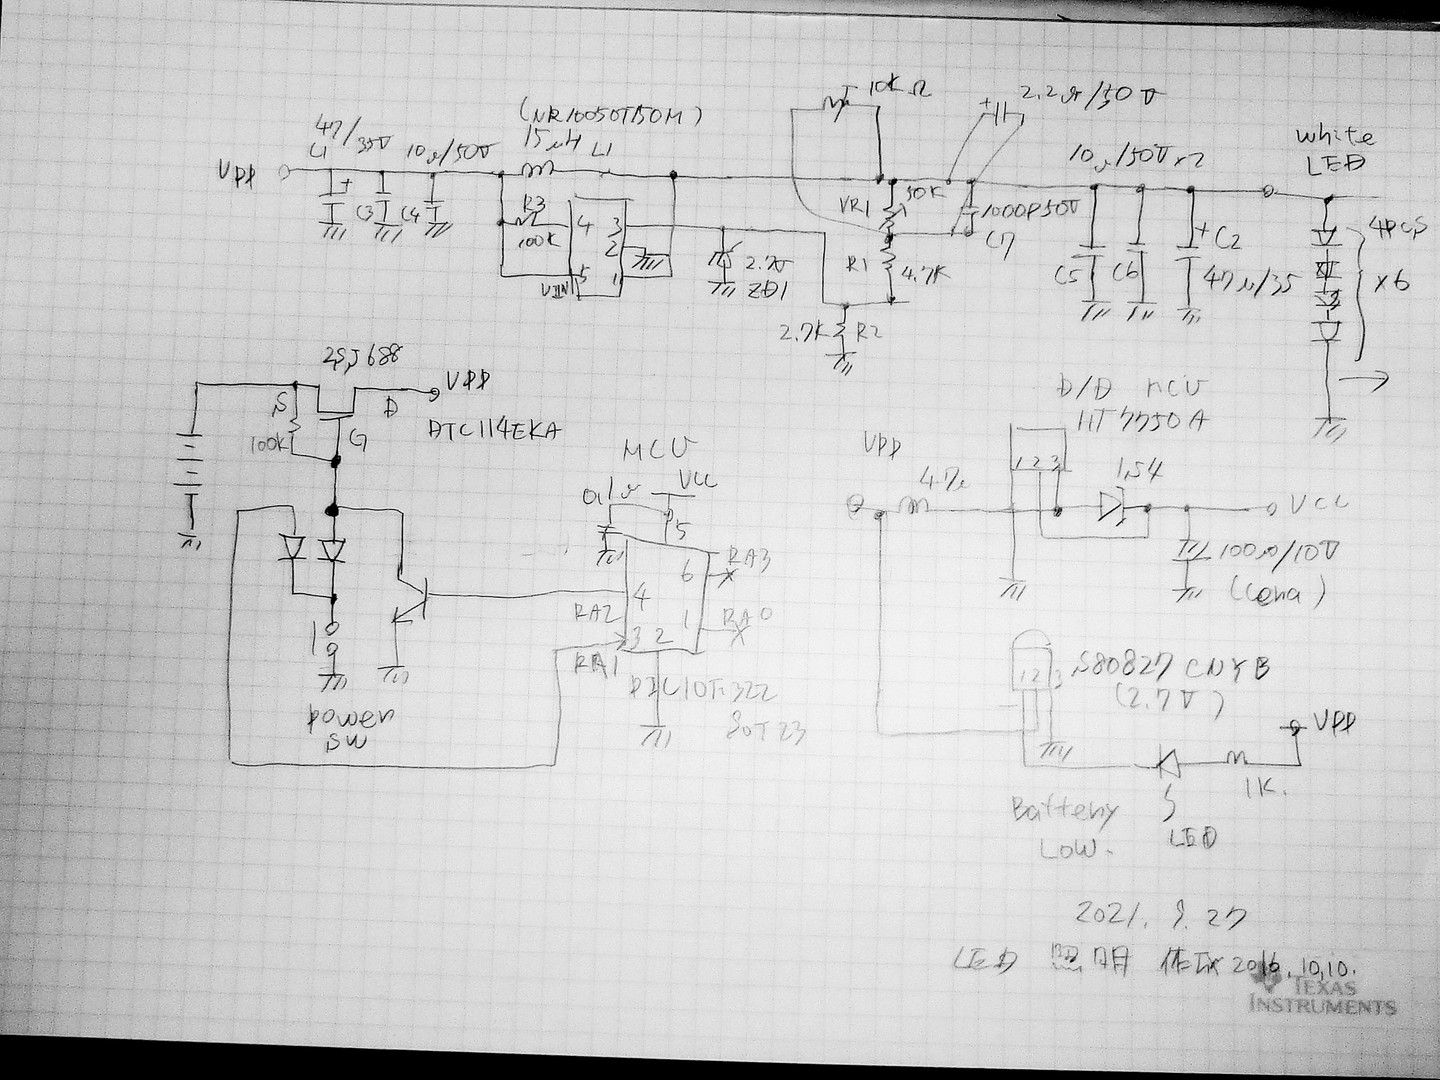 (NR10050T150M)
15μH L1
47/35V
C1
10μ/50V
VDD
+
C3
C4
R3
100K
4
3
2
5
1
VIN
2.7V
ZD1
10KΩ
2.2μ/50V
+
50K
VR1
1000P50V
C7
R1
4.7K
2.7K
R2
10μ/50V x2
C5
C6
+ C2
47μ/35
white
LED
4PCS
x6
2SJ688
VDD
S
D
G
100K
DTC114EKA
MCU
VCC
0.1μ
5
RA3
6
4
RA2
1
RA0
3 2
RA1
PIC10F322
SOT23
power
SW
D/D MCU
HT7750A
VDD
1 2 3
47μ
1S4
VCC
100μ/10V
(cera)
S80827CNYB
1 2 3
(2.7V)
VDD
1K.
Battery
Low.
LED
2021. 9. 27
LED 照明 作成 2016.10,10.
TEXAS
INSTRUMENTS